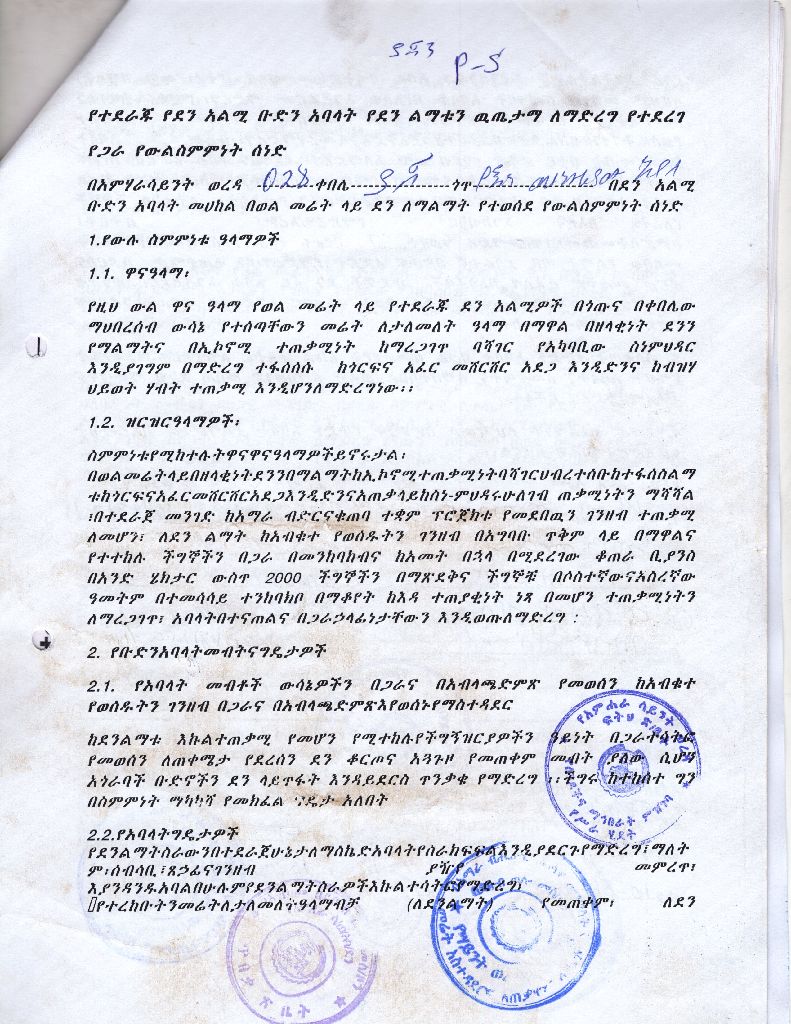 የተደራጁ የደን አልሚ ቡድን አባላት የደን ልማቱን ዉጤታማ ለማድረግ የተደረገ
የጋራ የውልስምምነት ሰነድ
በአምሃራሳይንት ወረዳ 028 ቀበሌ ጎጥ በደን አልሚ
ቡድን አባላት መሀከል በወል መሬት ላይ ደን ለማልማት የተወሰደ የውልስምምነት ሰነድ
1.የውሉ ስምምነቱ ዓላማዎች
1.1. ዋናዓላማ፡
የዚህ ውል ዋና ዓላማ የወል መሬት ላይ የተደራጁ ደን አልሚዎች በጎጡና በቀበሌው
ማህበረሰብ ውሳኔ የተሰጣቸውን መሬት ለታለመለት ዓላማ በማዋል በዘላቂነት ደንን
የማልማትና በኢኮኖሚ ተጠቃሚነት ከማረጋገጥ ባሻገር የአካባቢው ስነምህዳር
እንዲያገግም በማድረግ ተፋሰሱ ከጎርፍና አፈር መሸርሸር አደጋ እንዲድንና ከብዝሃ
ህይወት ሃብት ተጠቃሚ እንዲሆንለማድረግነው፡፡
1.2. ዝርዝርዓላማዎች፡
ስምምነቱየሚከተሉትዋናዋናዓላማዎችይኖሩታል፡
በወልመሬትላይበዘላቂነትደንንበማልማትከኢኮኖሚተጠቃሚነትባሻገርህብረተሰቡከተፋሰስልማ
ቱከጎርፍናአፈርመሸርሸርአደጋእንዲድንናአጠቃላይከስነ-ምህዳሩሁለገብ ጠቃሚነትን ማሻሻል
፣በተደራጀ መንገድ ከአማራ ብድርናቁጠባ ተቋም ፕሮጀክቱ የመደበዉን ገንዘብ ተጠቃሚ
ለመሆን፣ ለደን ልማት ከአብቁተ የወሰዱትን ገንዘብ በአግባቡ ጥቅም ላይ በማዋልና
የተተከሉ ችግኞችን በጋራ በመንከባከብና ከአመት በኋላ በሚደረገው ቆጠራ ቢያንስ
በአንድ ሄክታር ውስጥ 2000 ችግኞችን በማጽደቅና ችግኞቹ በሶስተኛውናአስረኛው
ዓመትም በተመሳሳይ ተንከባክቦ በማቆየት ከእዳ ተጠያቂነት ነጻ በመሆን ተጠቃሚነትን
ለማረጋገጥ፣ አባላትበተናጠልና በጋራኃላፊነታቸውን እንዲወጡለማድረግ ፡
2. የቡድንአባላትመብትናግዴታዎች
2.1. የአባላት መብቶች ውሳኔዎችን በጋራና በአብላጫድምጽ የመወሰን ከአብቁተ
የወሰዱትን ገንዘብ በጋራና በአብላጫድምጽእየወሰኑየማስተዳደር
ከደንልማቱ እኩልተጠቃሚ የመሆን የሚተከሉየችግኝዝርያዎችን ዓይነት በጋራተሳትፎ
የመወሰን ለጠቀሜታ የደረሰን ደን ቆርጦና አጓጉዞ የመጠቀም መብት ያለው ሲሆን
አጎራባች ቡድኖችን ደን ላይጥፋት እንዳይደርስ ጥንቃቄ የማድረግ ፡፡ችግሩ ከተከሰተ ግን
በስምምነት ማካካሻ የመክፈል ግዴታ አለበት
2.2.የአባላትግዴታዎች
የደንልማትስራውንበተደራጀሁኔታለማስኬድአባላትየስራክፍፍልእንዲያደርጉየማድረግ፣ማለት
ም፡ሰብሳቢ፣ጸጋፊናገንዘብ ያዥ መምረጥ፣
እያንዳንዱአባልበሁሉምየደንልማትስራዎችእኩልተሳትፎየማድረግ፣
የተረከቡትንመሬትለታለመለትዓላማብቻ (ለደንልማት) የመጠቀም፣ ለደን